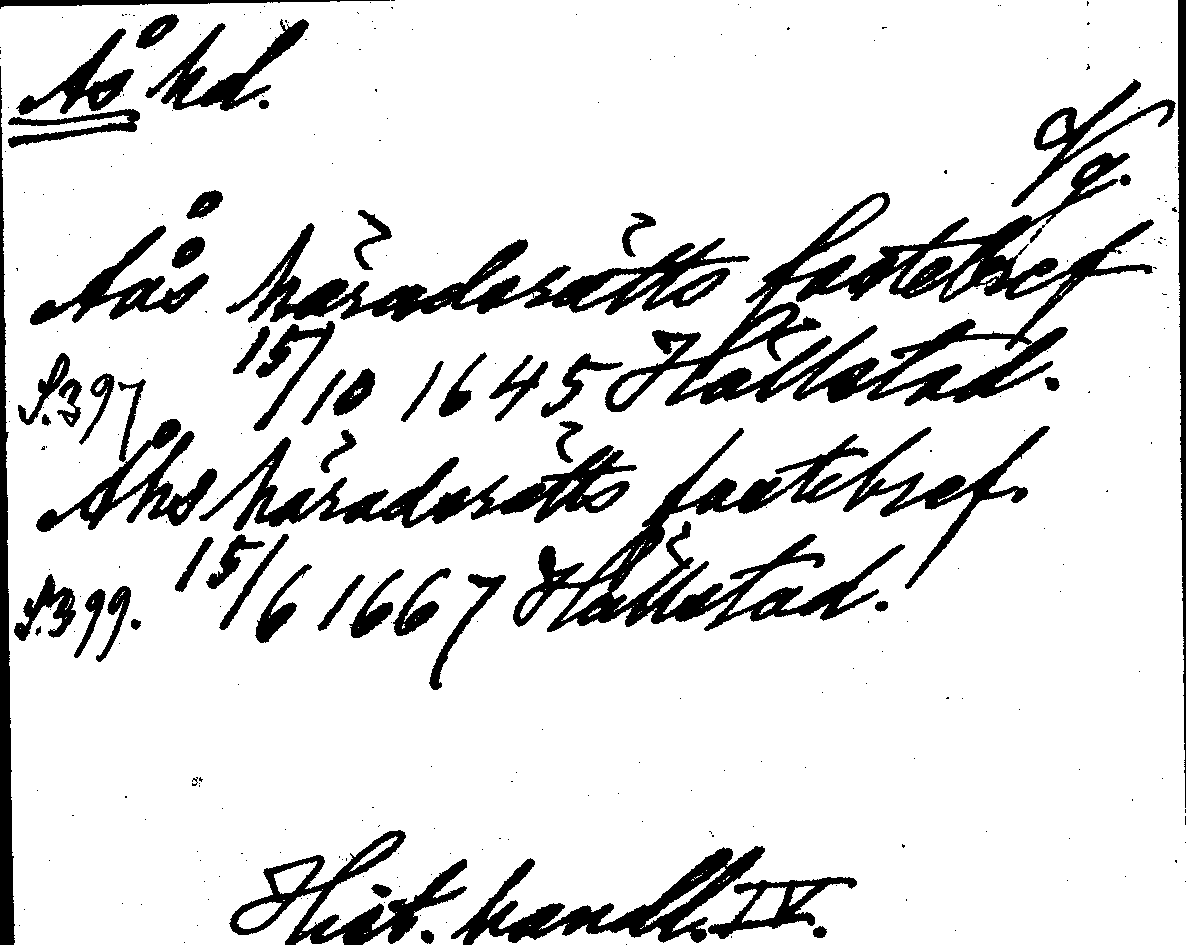 Ås hd.
Vg.
Åås häradsrätts fastebref
S. 397 15/10 1645 Hällstad.
Åhs häradsrätts fastebref.
S. 399. 15/6 1667 Hällstad.
Hist. handl. IV.